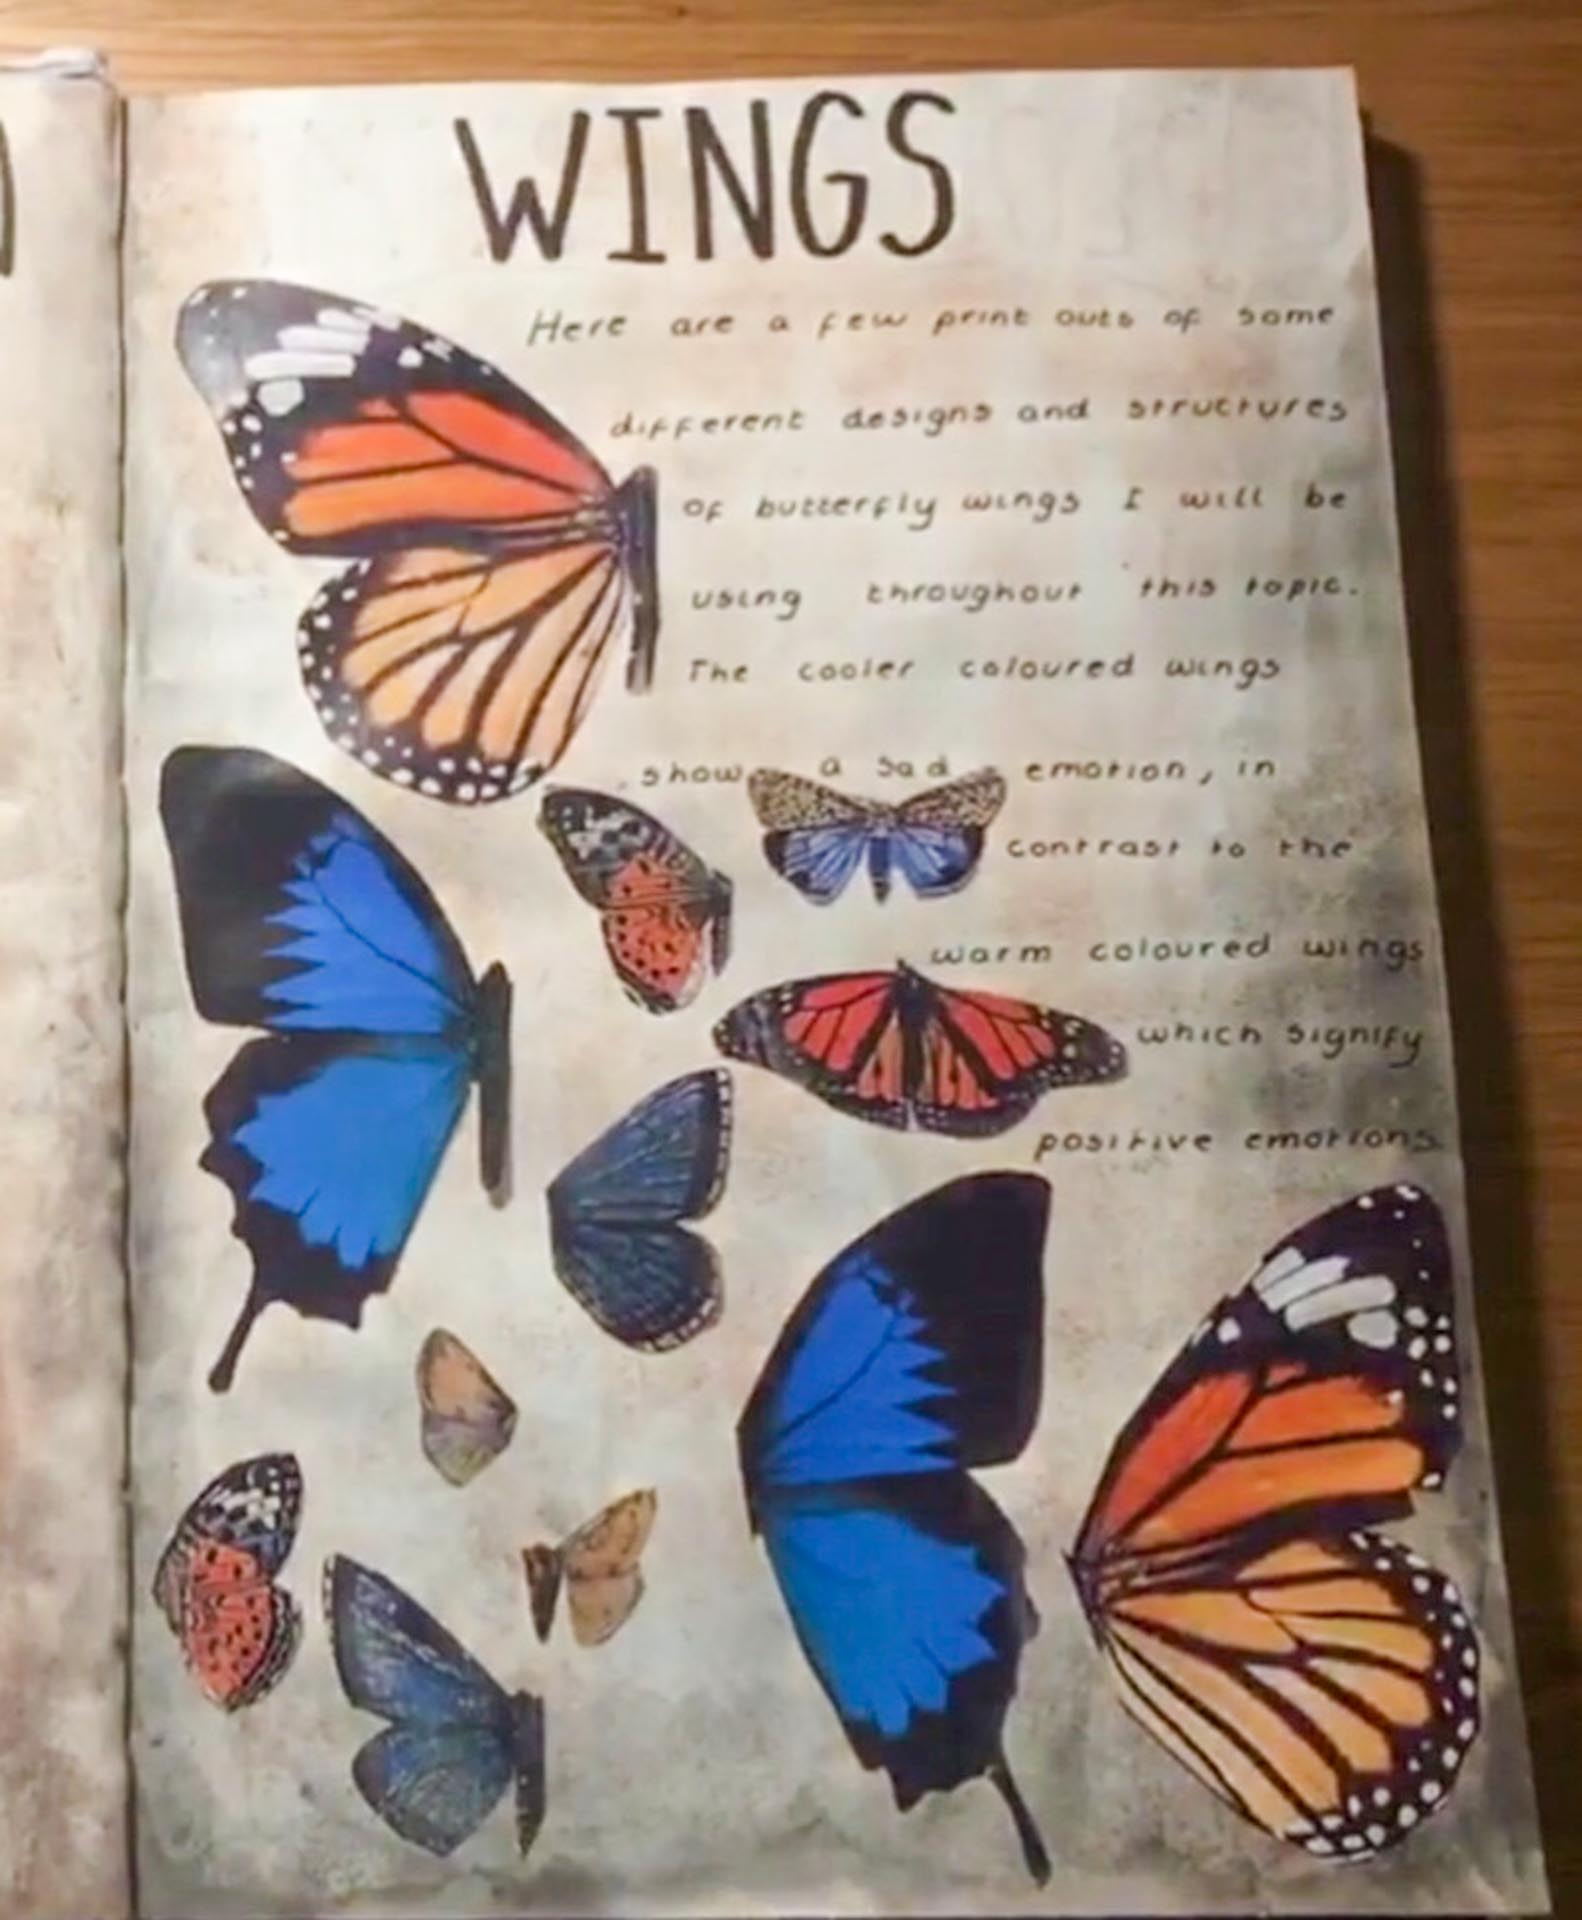 WINGS
Here are a few print outs of some
different designs and structures
of butterfly wings I will be
using throughout this topic.
The cooler coloured wings
show a sad emotion, in
contrast to the
warm coloured wings
which signify
positive emotions